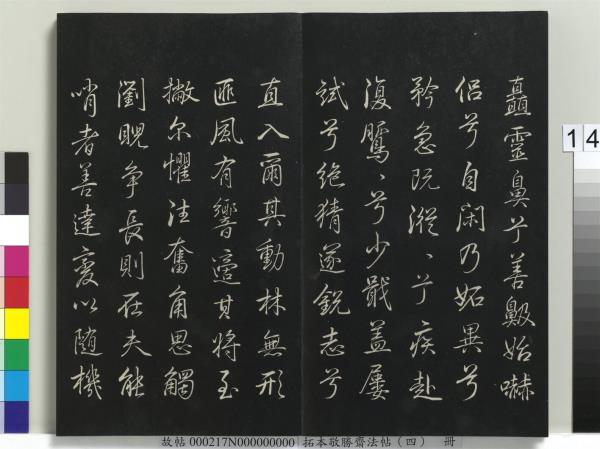 矗靈鼻兮善齅始嚇
侶兮自閑乃妬異兮
矜急既漎〻兮疾赴
復騭〻兮少戢蓋屢
試兮絶猜遂銳志兮
直入爾其動林無形
匪風有響臺其將至
撇尔懼注奮角思觸
劉睍爭長則在夫能
哨者善達變以隨機
故帖 000217N000000000 拓本敬勝齋法帖（四） 冊
14